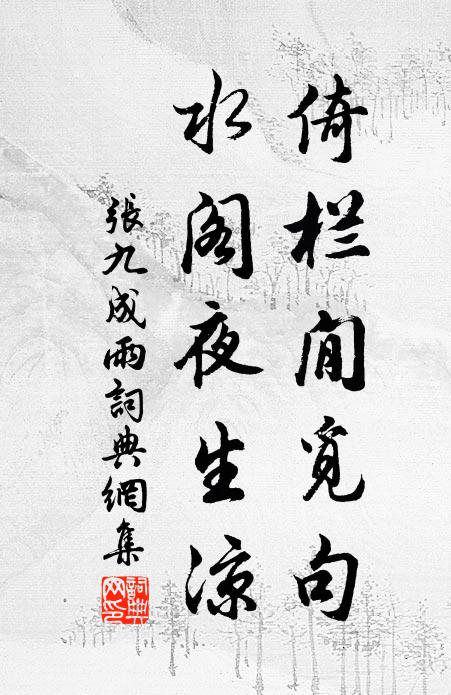 倚栏闲觅句
水阁夜生凉
張九成雨詞典網集
詞典